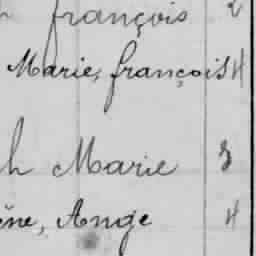 françois 2
Marie, françois 4
h Marie 3
ène, Ange 4